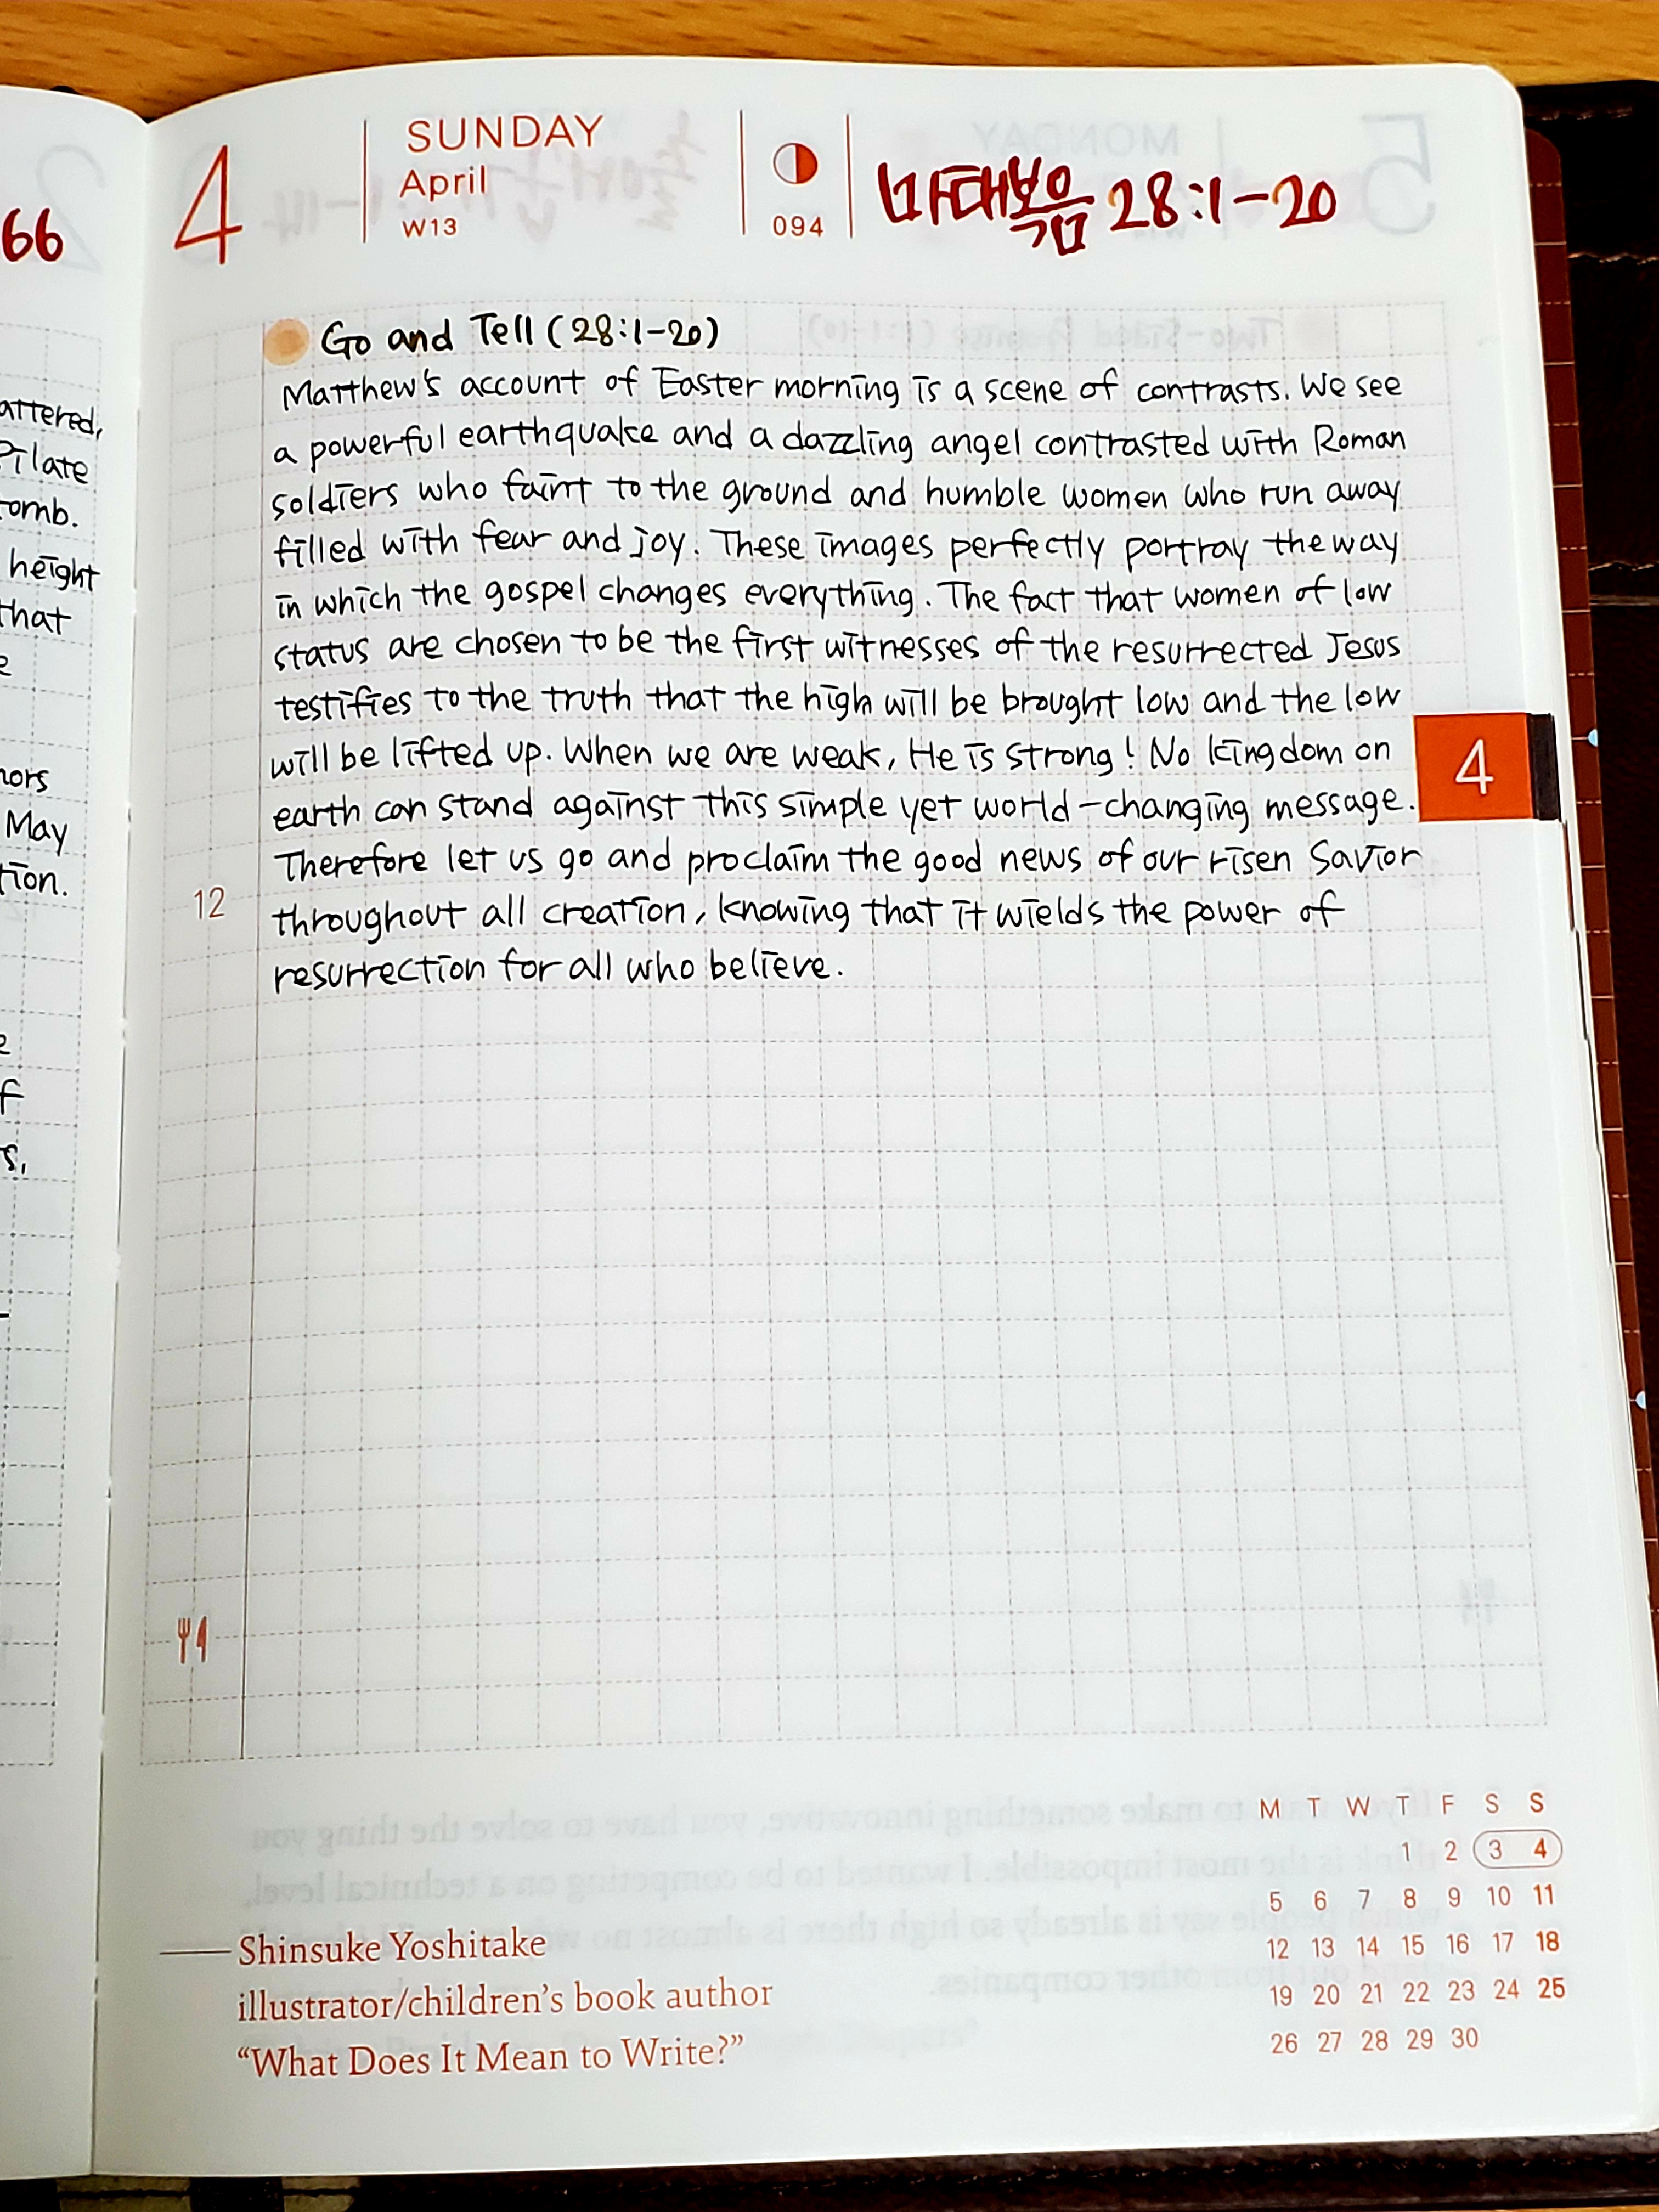 66
attered,
Pilate
omb.
height
that
e
nors
May
tion.
e
f
s,
4
SUNDAY
April
W13
094
마태복음 28:1-20
Go and Tell (28:1-20)
Matthew's account of Easter morning is a scene of contrasts. We see
a powerful earthquake and a dazzling angel contrasted with Roman
soldiers who faint to the ground and humble women who run away
filled with fear and joy. These images perfectly portray the way
in which the gospel changes everything. The fact that women of low
status are chosen to be the first witnesses of the resurrected Jesus
testifies to the truth that the high will be brought low and the low
will be lifted up. When we are weak, He is strong! No kingdom on
earth can stand against this simple yet world-changing message.
Therefore let us go and proclaim the good news of our risen Savior
throughout all creation, knowing that it wields the power of
resurrection for all who believe.
12
4
—— Shinsuke Yoshitake
illustrator/children's book author
“What Does It Mean to Write?”
M T W T F S S
1 2 3 4
5 6 7 8 9 10 11
12 13 14 15 16 17 18
19 20 21 22 23 24 25
26 27 28 29 30